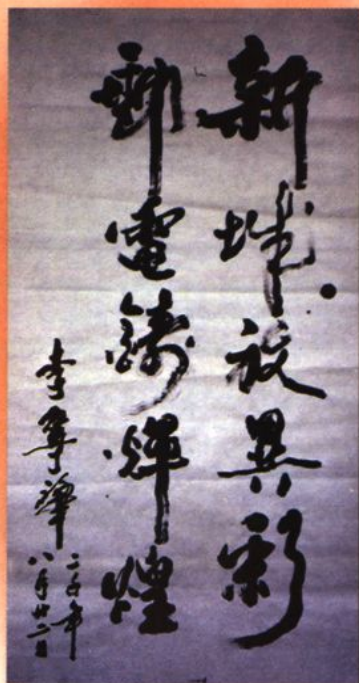 新城放異彩
郵電鑄輝煌
李 華
二千年
八月廿二日